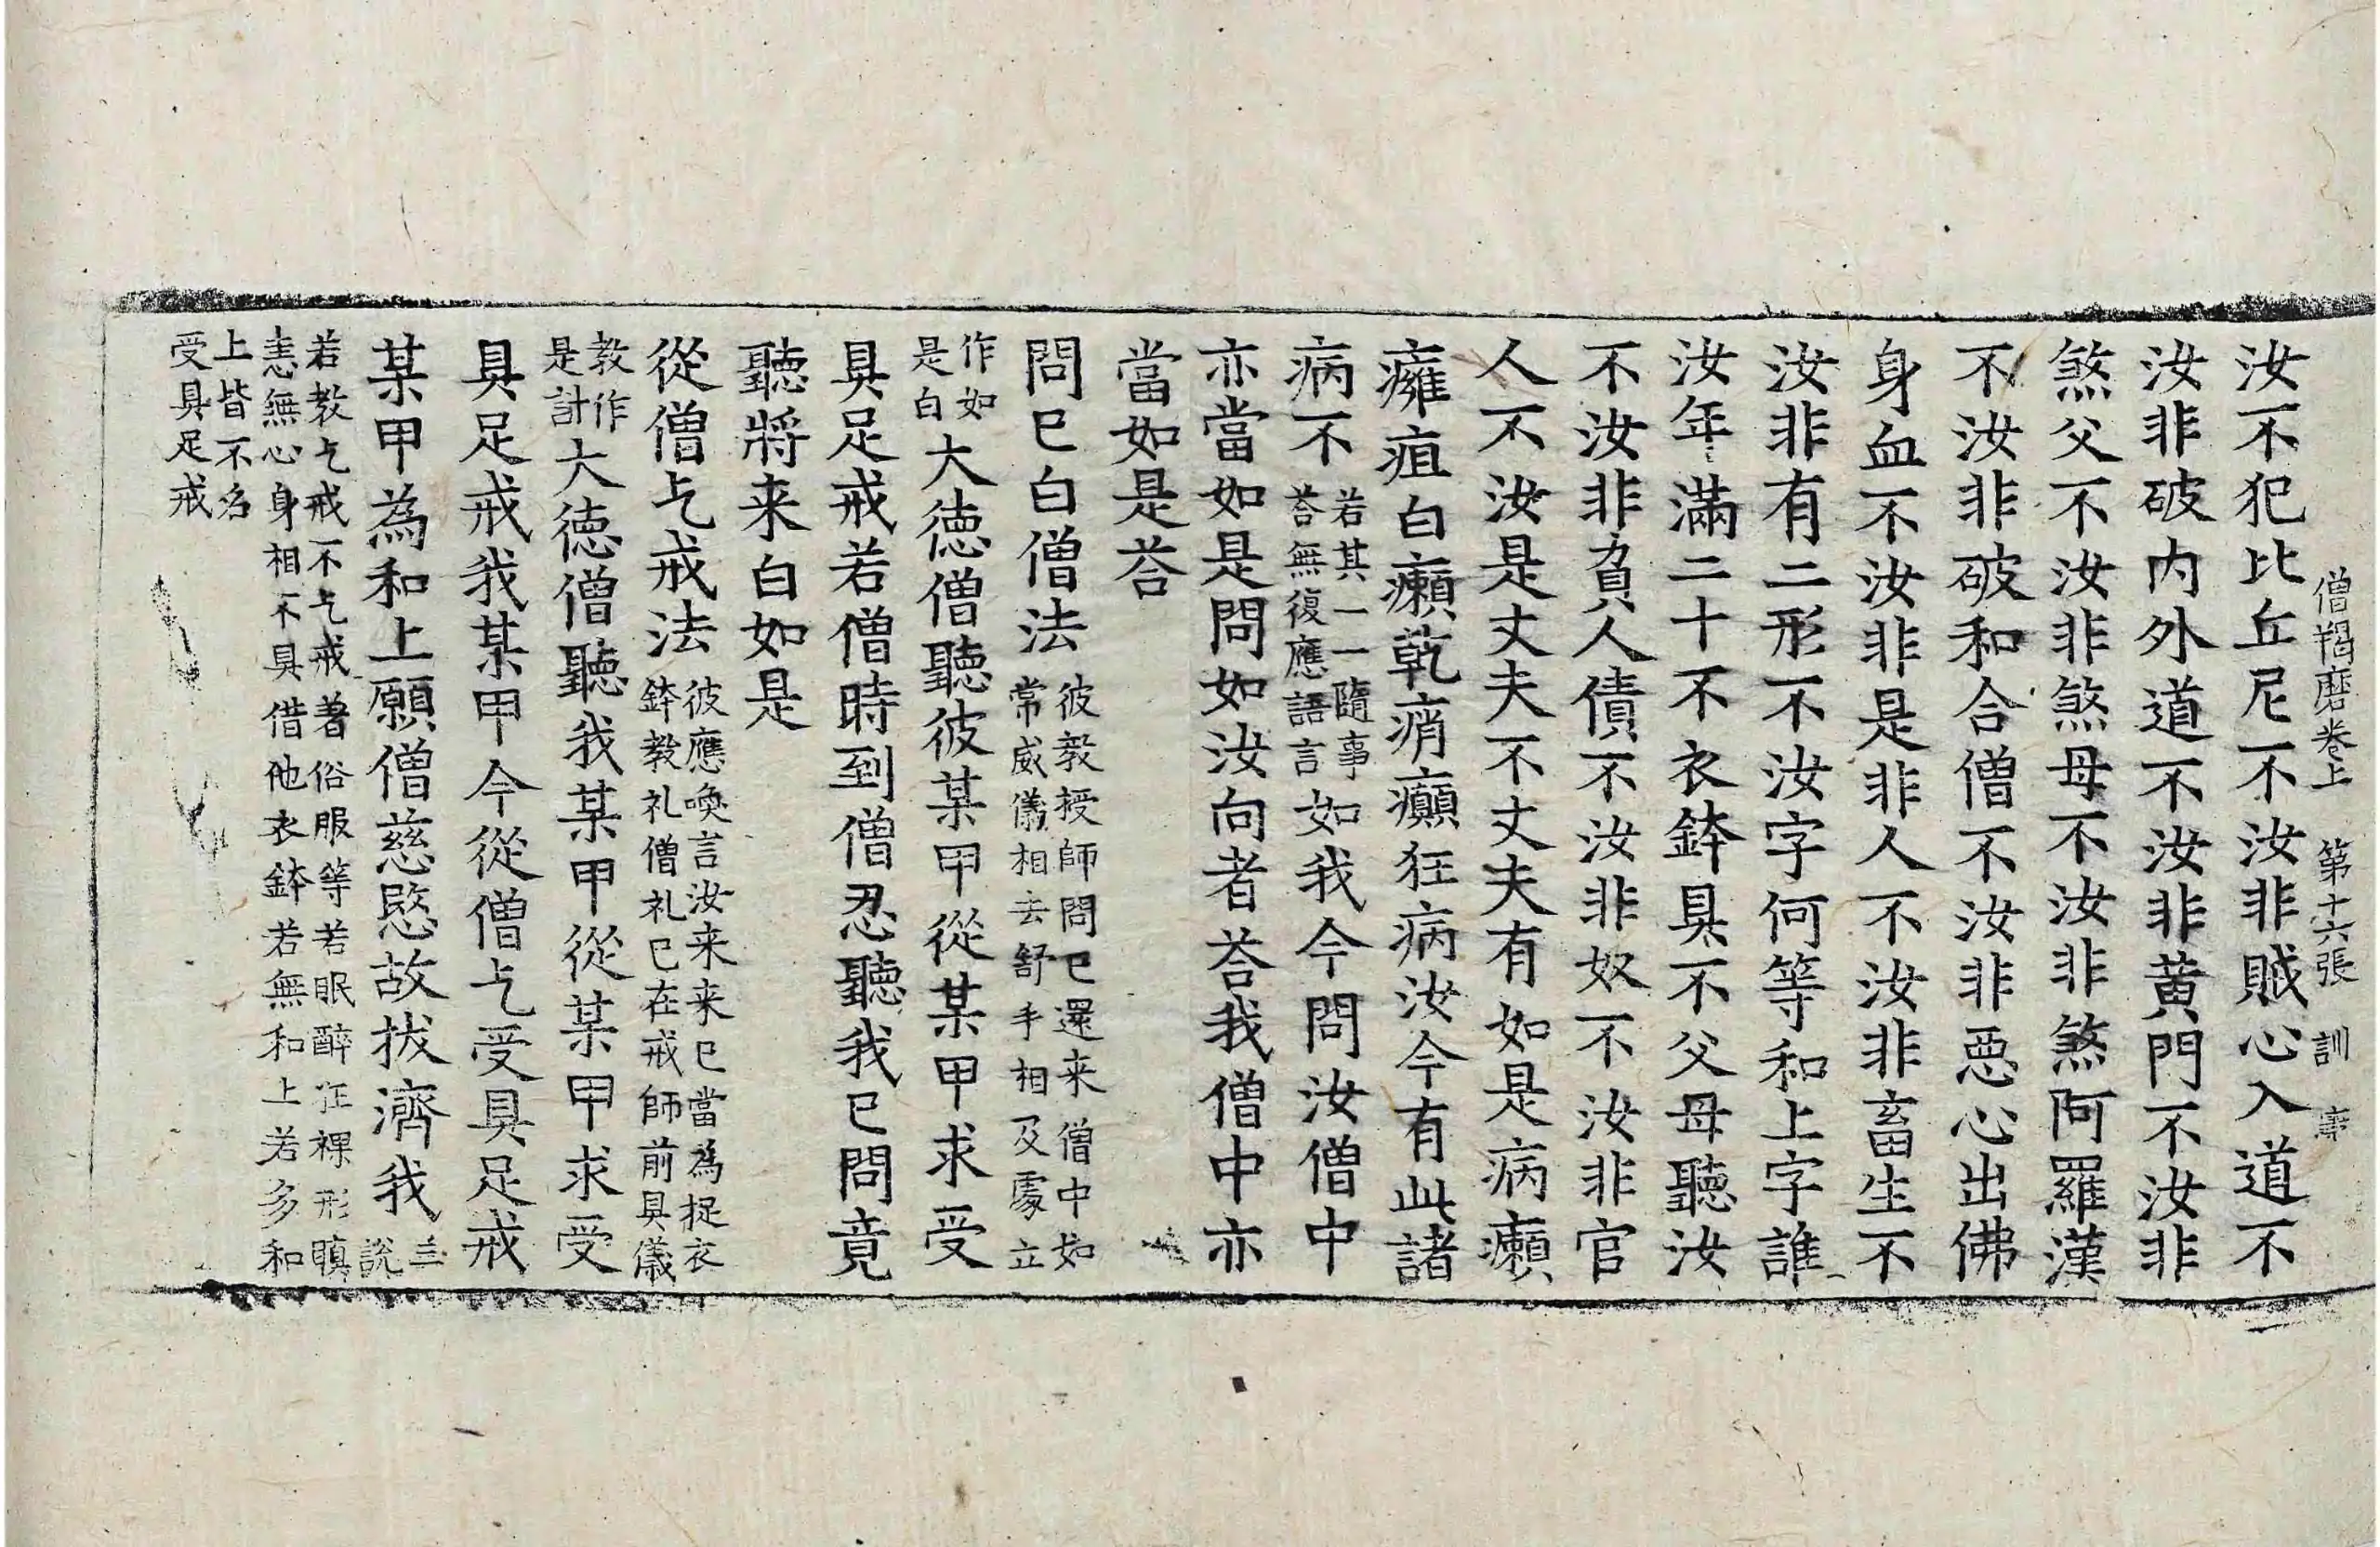 僧羯磨卷上 第十六張 訓
汝不犯比丘尼不汝非賊心入道不
汝非破内外道不汝非黄門不汝非
煞父不汝非煞母不汝非煞阿羅漢
不汝非破和合僧不汝非惡心出佛
身血不汝非是非人不汝非畜生不
汝非有二形不汝字何等和上字誰
汝年滿二十不衣鉢具不父母聽汝
不汝非負人債不汝非奴不汝非官
人不汝是丈夫不丈夫有如是病癩
癰疽白癩乾痟癲狂病汝今有此諸
病不若其一一隨事荅無復應語言如我今問汝僧中
亦當如是問如汝向者荅我僧中亦
當如是荅
問已白僧法彼教授師問已還来僧中如常威儀相去舒手相及處立
作如是白大徳僧聽彼某甲從某甲求受
具足戒若僧時到僧忍聽我已問竟
聽將来白如是
從僧乞戒法彼應喚言汝来来已當為捉衣鉢教礼僧礼已在戒師前具儀
教作是計大徳僧聽我某甲從某甲求受
具足戒我某甲今從僧乞受具足戒
某甲為和上願僧慈愍故拔濟我三說
若教乞戒不乞戒著俗服等若眠醉狂裸形瞋
恚無心身相不具借他衣鉢若無和上若多和
上皆不名
受具足戒